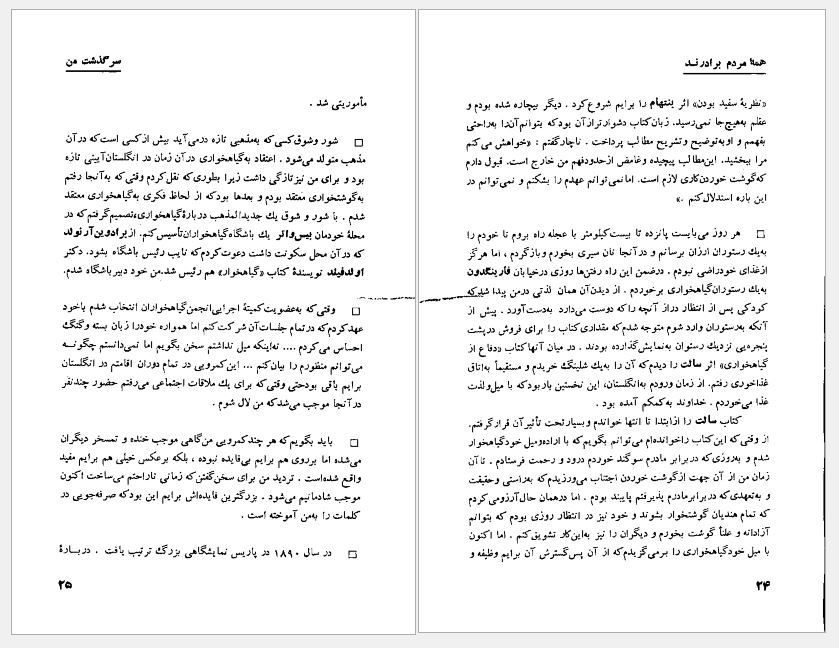 همهٔ مردم برادرند
«نظریهٔ سفید بودن» اثر بنتهام را برایم شروع کرد . دیگر بیچاره شده بودم و
عقلم به‌هیچ‌جا نمی‌رسید. زبان‌کتاب دشوارتر ازآن بود که بتوانم آن‌را به‌راحتی
بفهمم و او به‌توضیح وتشریح مطالب پرداخت . ناچار گفتم : «خواهش می‌کنم
مرا ببخشید. این‌مطالب پیچیده وغامض ازحدودفهم من خارج است. قبول دارم
که‌گوشت خوردن‌کاری لازم است. اما نمی‌توانم عهدم را بشکنم و نمی‌توانم در
این باره استدلال‌کنم .»
□ هر روز می‌بایست پانزده تا بیست‌کیلومتر با عجله راه بروم تا خودم را
به‌یك رستوران ارزان برسانم و درآنجا نان سیری بخورم وبازگردم ، اما هرگز
ازغذای خودراضی نبودم . درضمن این راه رفتن‌ها روزی درخیابان فارینگدون
به‌یك رستوران‌گیاهخواری برخوردم . از دیدن‌آن همان لذتی درمن پیدا شد که
کودکی پس از انتظار دراز آنچه را که دوست می‌دارد به‌دست‌آورد . پیش از
آنکه به‌رستوران وارد شوم متوجه شدم‌که مقداری‌کتاب را برای فروش درپشت
پنجره‌یی نزدیك رستوان به‌نمایش‌گذارده بودند . در میان آنها کتاب «دفاع از
گیاهخواری» اثر سالت را دیدم‌که آن را به‌یك شلینگ خریدم و مستقیماً به‌اتاق
غذاخوری رفتم. از زمان ورودم به‌انگلستان، این نخستین باربود که با میل‌ولذت
غذا می‌خوردم . خداوند به‌کمکم آمده بود .
کتاب سالت را ازابتدا تا انتها خواندم وبسیارتحت تأثیرآن قرارگرفتم.
از وقتی‌که این‌کتاب راخوانده‌ام می‌توانم بگویم‌که با اراده‌ومیل خودگیاهخوار
شدم و به‌روزی‌که دربرابر مادرم سوگند خوردم درود و رحمت فرستادم . تاآن
زمان من از آن جهت ازگوشت خوردن اجتناب می‌ورزیدم‌که به‌راستی وحقیقت
و به‌تعهدی‌که دربرابرمادرم پذیرفتم پایبند بودم . اما درهمان حال‌آرزومی‌کردم
که تمام هندیان گوشتخوار بشوند و خود نیز در انتظار روزی بودم که بتوانم
آزادانه و علناً گوشت بخورم و دیگران را نیز به‌این‌کار تشویق‌کنم . اما اکنون
با میل خودگیاهخواری را برمی‌گزیدم‌که از آن پس‌گسترش آن برایم وظیفه و
۲۴
سرگذشت من
مأموریتی شد .
□ شور وشوق‌کسی که به‌مذهبی تازه درمی‌آید بیش ازکسی است‌که درآن
مذهب متولد می‌شود . اعتقاد به‌گیاهخواری درآن زمان در انگلستان‌آیینی تازه
بود و برای من نیزتازگی داشت زیرا بطوری‌که نقل‌کردم وقتی‌که به‌آنجا رفتم
به‌گوشتخواری معتقد بودم و بعدها بودکه از لحاظ فکری به‌گیاهخواری معتقد
شدم . با شور و شوق یك جدیدالمذهب دربارهٔ «گیاهخواری»تصمیم‌گرفتم‌که در
محلهٔ خودمان بیس‌واتر یك باشگاه‌گیاهخواران‌تأسیس‌کنم. ازبرادوین‌آرنولد
که درآن محل سکونت داشت دعوت‌کردم‌که نایب رئیس باشگاه بشود. دکتر
اولدفیلد نویسندهٔ کتاب «گیاهخوار» هم رئیس شد.من خود دبیرباشگاه شدم.
□ وقتی که به‌عضویت‌کمیتهٔ اجرایی‌انجمن‌گیاهخواران انتخاب شدم باخود
عهدکردم‌که درتمام جلسات‌آن شرکت‌کنم اما همواره خودرا زبان بسته وگنگ
احساس می‌کردم .... نه‌اینکه میل نداشتم سخن بگویم اما نمی‌دانستم چگونـه
می‌توانم منظورم را بیان‌کنم ... این‌کمرویی در تمام دوران اقامتم در انگلستان
برایم باقی بودحتی وقتی‌که برای یك ملاقات اجتماعی می‌رفتم حضور چندنفر
درآنجا موجب می‌شدکه من لال شوم .
□ باید بگویم‌که هر چندکمرویی من‌گاهی موجب خنده و تمسخر دیگران
می‌شده اما برروی هم برایم بی‌فایده نبوده ، بلکه برعکس خیلی هم برایم مفید
واقع شده‌است . تردید من برای سخن‌گفتن‌که زمانی ناراحتم می‌ساخت اکنون
موجب شادمانیم می‌شود . بزرگترین فایده‌اش برایم این بودکه صرفه‌جویی در
کلمات را به‌من آموخته است .
□ در سال ۱۸۹۰ در پاریس نمایشگاهی بزرگ ترتیب یافت . دربـارهٔ
۲۵